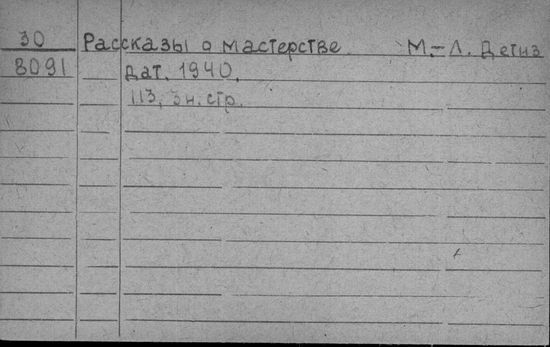 30 Рассказы о мастерстве М.-Л. Детиз
8091 дат. 1940.
113, 3 н. стр.